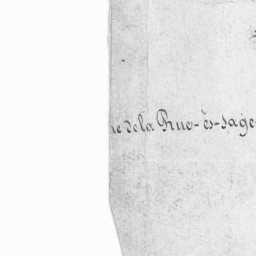 de la Rue-ès-sage